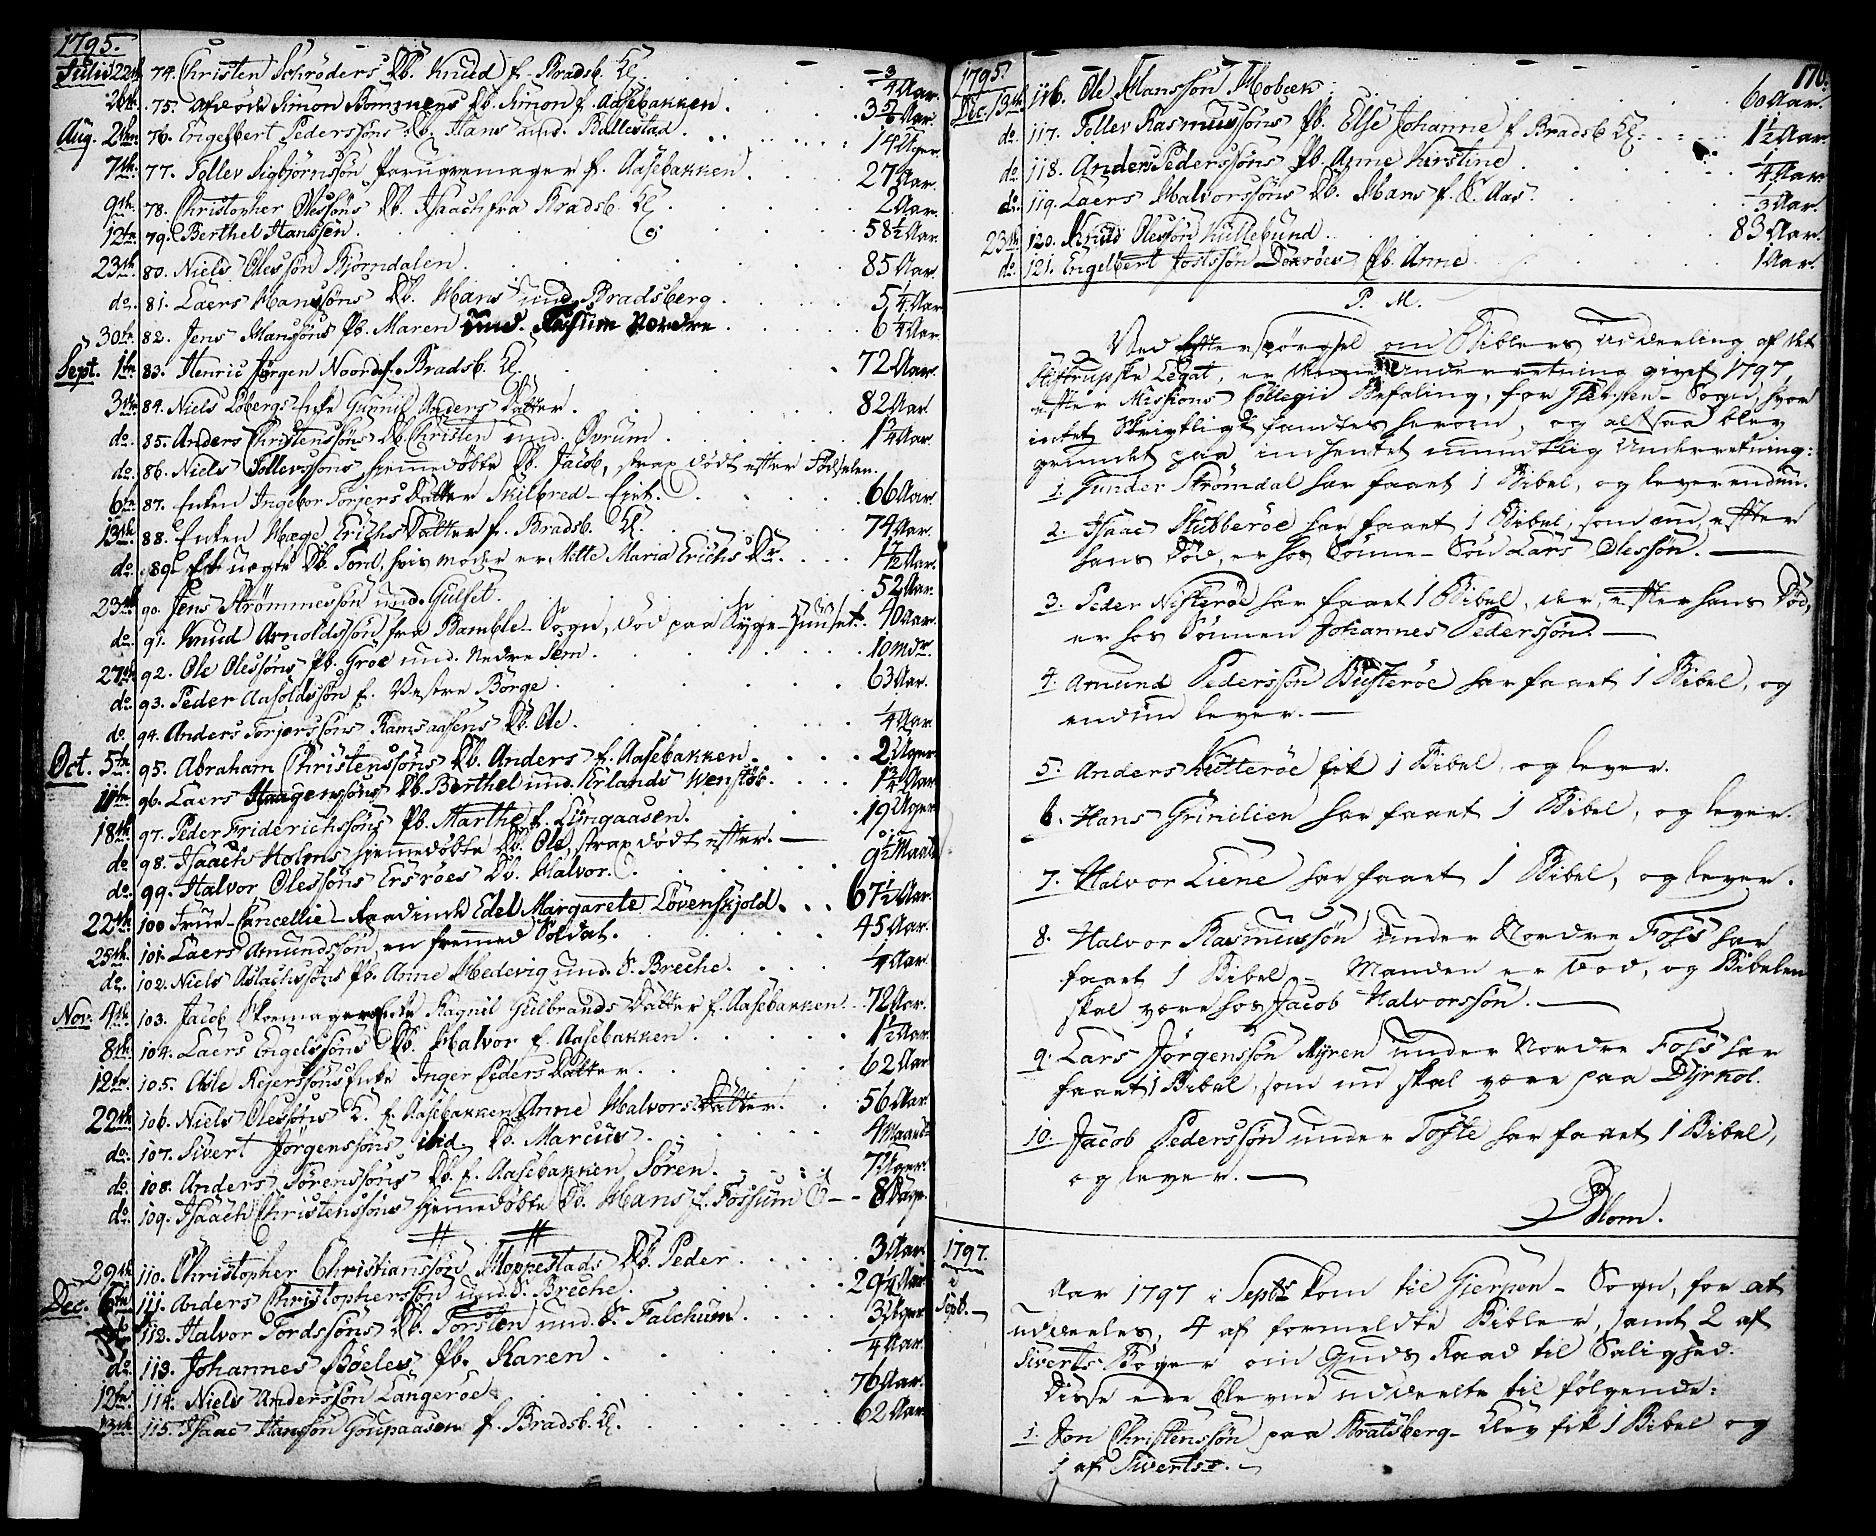 1795.
Julii 22de 74. Christen Schröders Db. Knud f. Bradsb. Kl. . . . 3/4 Aar.
26th. 75. Simon Db. Simon f. Aasebakken . . 3 5/6 Aar.
Aug. 2den 76. Engelbert Pederssøns Db. Hans und. Ballestad . . . . 14 Uger.
7th. 77. Tollev Sigbjørnssøn Parugvemager f. Aasebakken . . . 27 Aar.
9th. 78. Christopher Olessøns Db. Isaach fra Bradsb. Kl. . . . 2 Aar.
12te. 79. Berthel Hanssøn . . . . 58 1/2 Aar.
23th. 80. Niels Olessøn Bjørndalen . . . . 85 Aar.
do. 81. Laers Hanssøns Db. Hans und. Bradsberg . . . . 5 1/4 Aar.
30th. 82. Jens Hansøns Pb. Maren und. Fossum Nordre . . . 6 1/4 Aar.
Sept. 1te 83. Henric Jørgen Noord f. Bradsb. Kl. . . . 72 Aar.
3die 84. Niels Løbergs Enke Gunnil Anders Datter . . . . 82 Aar.
do. 85. Anders Christenssøns Db. Christen und. Øvrum . . . . 1 1/4 Aar.
do. 86. Niels Tollevssøns hjemmedøbte Db. Jacob, strax dødt efter Fødselen.
6te. 87. Enken Ingebor Torjers Datter Skilbred-Eiet. . . . 66 Aar.
13th. 88. Enken Hæge Erichs Datter f. Bradsb. Kl. . . . 74 Aar.
do. 89. Et uægte Db. Tord, hvis moder er Mette Maria Erichs Dr. . . . 1 1/2 Aar.
23th. 90. Jens Strømmessøn und. Gulset . . . . 52 Aar.
do. 91. Knud Arnoldssøn fra Bamble-Sogn, død paa Syge-Huuset . 40 Aar.
27th. 92. Ole Olessøns Pb. Groe und. Nedre Sem . . . . 10 mdr.
do. 93. Peder Aasoldssøn f. Vestre Børge . . . . 63 Aar.
do. 94. Anders Torjerssøns Ramsaasens Db. Ole . . . . 1/4 Aar.
Oct. 5te 95. Abraham Christenssøns Db. Anders f. Aasebakken . . . . 2 Uger.
11te 96. Laers Haagenssøns Db. Berthel und. Erlands Wenstøb . . . 1 1/4 Aar
18th. 97. Peder Friderichssøns Pb. Marthe f. Lungaasen . . . 19 Uger
do 98. Isaach Holms hjemmedøbte Db. Ole, strax dødt efter. — . . .
do. 99. Halvor Olessøns Ersrøes Db. Halvor . . . . 9 1/2 Maan.
22th. 100 Frue Cancellie-Raadinde Edel Margarete Løvenskjold . . . 67 1/2 Aar.
25th. 101. Laers Amundssøn, en fremmed Soldat . . . 45 Aar.
do. 102. Niels Aslachssøns Pb. Anne Hedevig und. S. Breche . . . 1/4 Aar.
Nov. 4th. 103. Jacob Skoemagers Enke Ragnil Gulbrands Datter f. Aasebakken . . 72 Aar.
8th. 104. Laers Engelssøns Db. Halvor f. Aasebakken . . . . 1 1/2 Aar.
12te. 105. Asle Rejerssøns Enke Inger Peders Datter . . . . 62 Aar
22th. 106. Niels Olessøns K. f. Aasebakken Anne Halvors Datter . . . 56 Aar.
do. 107. Sivert Jørgenssøns ibid. Db. Marcus . . . . 4 Maand.
do. 108. Anders Sørenssøns Db. f. Aasebakken Søren . . . . 7 Uger.
do. 109. Isaach Christenssøns hjemmedøbte Db. Hans f. Fossum — 8 Dage.
29th. 110. Christopher Christianssøn Moppestads Db. Peder . . . . 3 Aar.
Dec. 6te 111. Anders Christopherssøn und. S. Breche . . . . 29 1/4 Aar
112. Halvor Tordssøns Db. Torsten und. S. Falchum . . . . 3 Uger
do 113. Johannes Bøeles Pb. Karen . . . . 1/4 Aar.
12te 114. Niels Anderssøn Langerøe . . . . 76 Aar.
13th. 115. Isaac Hanssøn Goupaasen f. Bradsb. Kl. . . . . 62 Aar
1795. 170.
Dec. 13th. 116. Ole Hanssøn Mobæk . . . . 60 Aar.
do. 117. Tollev Rasmussøns Pb. Else Johanne f. Bradsb. Kl. . . . 1 1/2 Aar
do. 118. Anders Pederssøns Pb. Anne Kirstine . . . . 1/4 Aar.
do. 119. Laers Halvorssøns Db. Hans f. S. Aas . . . . 3 Aar.
23th. 120. Knud Olessøn Hullebund . . . . 83 Aar.
do. 121. Engelbert Jostssøn Pb. Anne . . . . 1 Aar.
P. M.
Ved Efterspørgsel om Biblers Uddeeling af det
Legat, er denne Underretning givet 1797
efter Missions Collegii Befaling, for Gjerpen-Sogn, hvor
intet Skriftligt fandtes herom, og altsaa blev
grundet paa indhentet mundtlig Underretning:
1. Gunder Strømdal har faaet 1 Bibel, og lever endnu.
2. Isaac Stubberøe har faaet 1 Bibel, som nu, efter
hans død, er hos Sønne-Søn Lars Olessøn. —
3. Peder Nisterøe har faaet 1 Bibel, der, efter hans Død,
er hos Sønnen Johannes Pederssøn. —
4. Amund Pederssøn Bisterøe har faaet 1 Bibel, og
endnu lever. —
5. Anders Kitterøe fik 1 Bibel, og lever.
6. Hans Grinilien har faaet 1 Bibel, og lever.
7. Halvor Liene har faaet 1 Bibel, og lever.
8. Halvor Rasmussøn under Nordre Foss har
faaet 1 Bibel, - Manden er død, og Bibelen
skal være hos Jacob Halvorssøn. —
9. Lars Jørgenssøn Myren under Nordre Foss har
faaet 1 Bibel, som nu skal være paa Dyrkol.
10. Jacob Pederssøn under Tofte har faaet 1 Bibel,
og lever. —
Blom.
1797.
i
Septb. —
Aar 1797 i Septbr kom til Gjerpen-Sogn, for at
uddeeles, 4 af formeldte Bibler, samt 2 af
Siverts Bøger om Guds Raad til Salighed.
Disse ere blevne uddeelte til følgende:
1. Jon Christenssøn paa Bratsberg-Klev fik 1 Bibel og
1 af Siverts. —